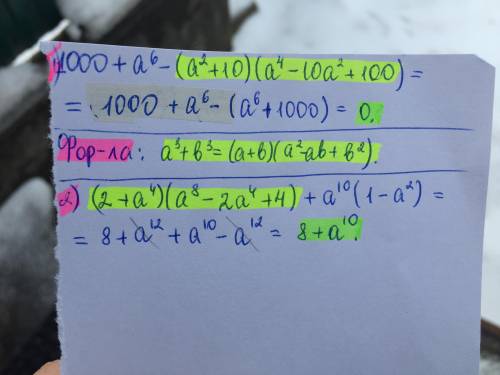 1) 1000 + a⁶ - (a² + 10)(a⁴ - 10a² + 100) =
= 1000 + a⁶ - (a⁶ + 1000) = 0.
Фор-ла: a³ + b³ = (a + b)(a² ab + b²).
2) (2 + a⁴)(a⁸ - 2a⁴ + 4) + a¹⁰(1 - a²) =
= 8 + a¹² + a¹⁰ - a¹² = 8 + a¹⁰.